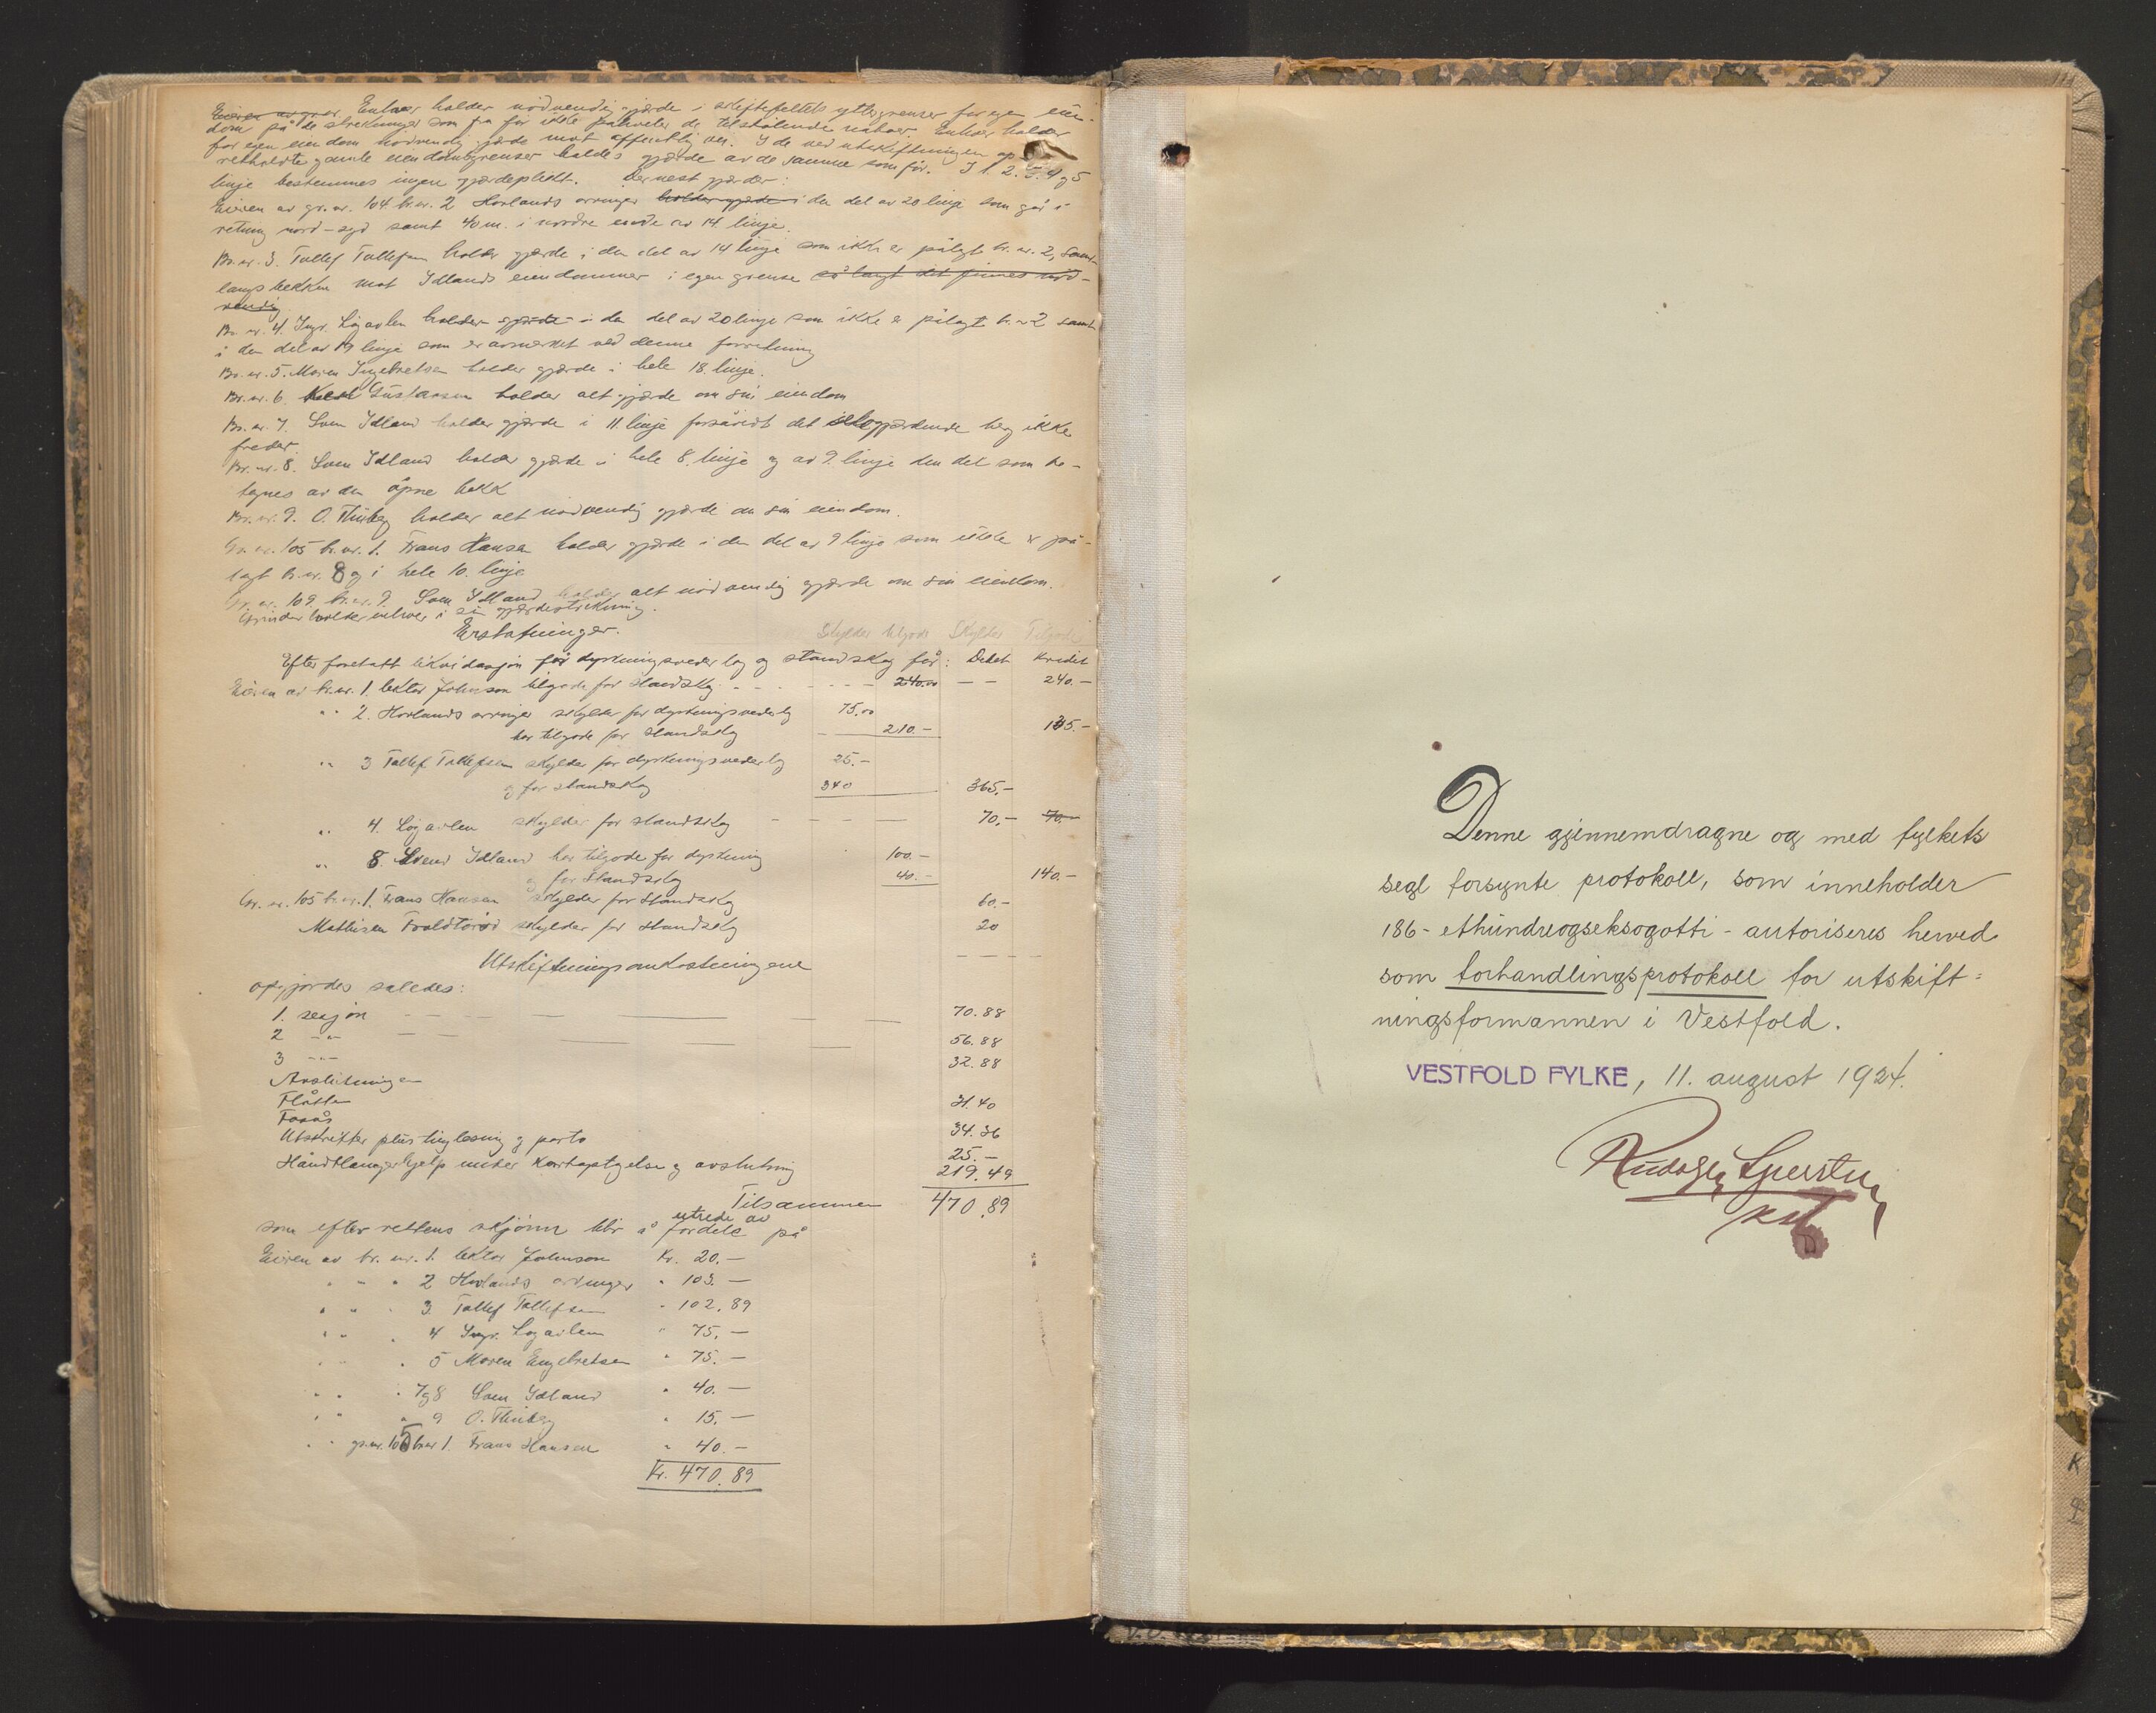 Eieren av gnr Enhver holder nødvendig gjærde i skiftefeltets yttergrenser for egen eien-
dom på de strekninger som fra før ikke påhviler de tilstøtende naboer. Enhver holder
for egen eiendom nødvendig gjærde mot offentlig vei. I de ved utskiftningen op
retholdte gamle eiendomsgrenser holdes gjærde av de samme som før. I 1. 2. 3. 4 og 5
linje bestemmes ingen gjærdeplikt. Dernest gjærder:
Eieren av gr. nr. 104 br. nr. 2 Hovlands arvinger holder gjærde i den del av 20 linje som går i
retning nord-syd samt 40 m. i nordre ende av 14 linje.
Br. nr. 3. Tollef Tollefsen holder gjærde i den del av 14 linje som ikke er pålagt br. nr. 2, samt
langs bekken mot Idlands eiendommer i egen grense så langt det finnes nød-
vendig
Br. nr. 4. Ingv. Løgavlen holder gjærde i den del av 20 linje som ikke er pålagt br. nr 2 samt
i den del av 19 linje som er avmerket ved denne forretning
Br. nr. 5. Maren Ingebretsen holder gjærde i hele 18. linje.
Br. nr. 6. Gustavsen holder alt gjærde om sin eiendom
Br. nr. 7. Sven Idland holder gjærde i 11. linje forsåvidt det gjærdende berg ikke
freder.
Br. nr. 8. Sven Idland holder gjærde i hele 8. linje og av 9. linje den del som be-
tegnes av den åpne bekk
Br. nr. 9. O. Thinberg holder alt nødvendig gjærde om sin eiendom.
Gr. nr. 105 br. nr. 1. Frans Hansen holder gjærde i den del av 9 linje som ikke er på-
lagt br. nr. 8 og i hele 10. linje
Gr. nr. 109 br. nr. 9. Sven Idland holder alt nødvendig gjærde om sin eiendom.
Grinder holder enhver i sin gjærdestrekning.
Erstatninger. Skylder tilgode Skylder Tilgode
Efter foretatt likvidasjon for dyrkningsvederlag og standskog får: Debet Kredit
Eieren av br. nr. 1. lektor Johnson tilgode for standskog - - - 240.00 - - 240.-
" " 2. Hovlands arvinger skylder for dyrkningsvederlag 75.00
har tilgode for standskog 210.- 135.-
" " 3 Tollef Tollefsen skylder for dyrkningsvederlag 25.-
og for standskog 340 365.-
" 4. Løgavlen skylder for standskog - - - - 70.- 70.-
" 8. Svend Idland har tilgode for dyrkning 100.-
og for standskog 40.- 140.-
Gr. nr. 105 br. nr. 1. Frans Hansen skylder for standskog 60.-
Mathisen skylder for standskog 20
Utskiftningsomkostningene - - - -
opgjordes således:
1. sesjon - - - 70.88
2 -"- - - 56.88
3 -"- 32.88
Avslutningen
Flåtten 31.40
Foss 34.36
Utskrifter plus tinglesning og porto 25.-
Håndtlangerhjelp under kartoptagelse og avslutning 219.49
Tilsammen 470.89
utrede av
som efter rettens skjønn blir å fordele på
Eieren av br. nr. 1. lektor Johnson Kr. 20.-
" " " 2 Hovlands arvinger " 103.-
" " " 3. Tollef Tollefsen " 102.89
" " " 4 Ingv. Løgavlen " 75.-
" " " 5 Maren Engebretsen " 75.-
" " " 7 og 8 Sven Idland " 40.-
" " " 9 O. Thinberg " 15.-
" " gr. nr. 105 br. nr 1. Frans Hansen " 40.-
Kr. 470.89
Denne gjennemdragne og med fylkets
segl forsynte protokoll, som inneholder
186 - ethundreogseksogotti - autoriseres herved
som forhandlingsprotokoll for utskift=
ningsformannen i Vestfold.
VESTFOLD FYLKE, 11. august 1924.